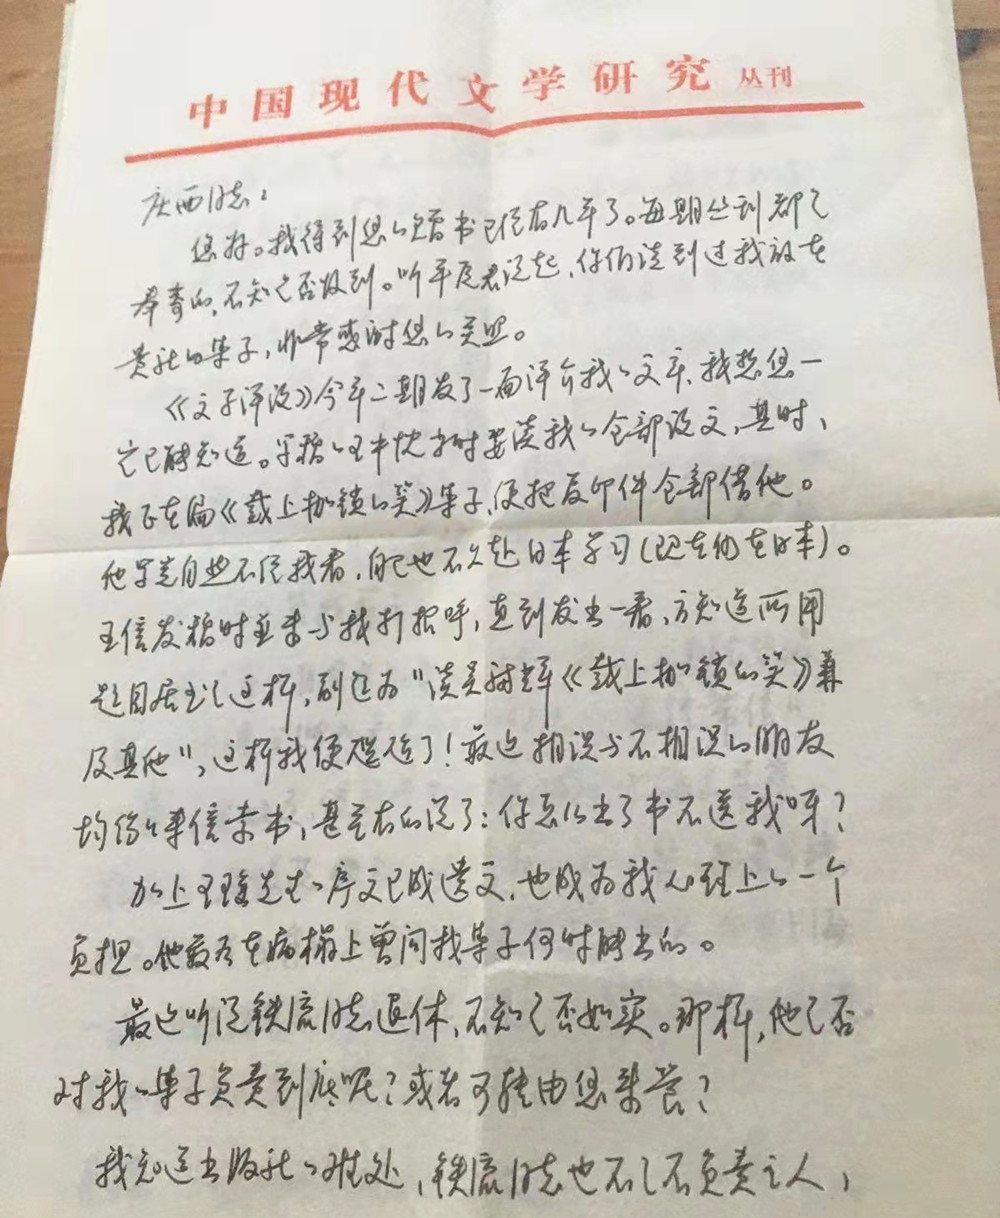 中国现代文学研究 丛刊
庆西同志：
您好。我得到您的赠书已经有几年了。每期丛刊都是
奉寄的，不知是否收到。听平原君说起，你们谈到过我放在
贵社的集子，非常感谢您的关照。
《文学评论》今年二期发了一篇评介我的文章，我想您一
定已经知道。写稿的王中忱当时要读我的全部论文，其时，
我正在编《戴上枷锁的笑》集子，便把复印件全部借他。
他写完自然不经我看，自己也不久赴日本学习（现在仍在日本）。
王信发稿时并未与我打招呼，直到发出一看，方知道所用
题目居然是这样，副题为“谈吴福辉《戴上枷锁的笑》兼
及其他”，这样我便尴尬了！最近相识与不相识的朋友
均纷纷来信索书，甚至有的说了：你怎么出了书不送我呀？
加上王瑶先生的序文已成遗文，也成为我心理上的一个
负担。他最后在病榻上曾问我集子何时能出的。
最近听说铁流同志退休，不知是否如实。那样，他是否
对我的集子负责到底呢？或者可转由您来管？
我知道出版社的难处，铁流同志也不是不负责之人，